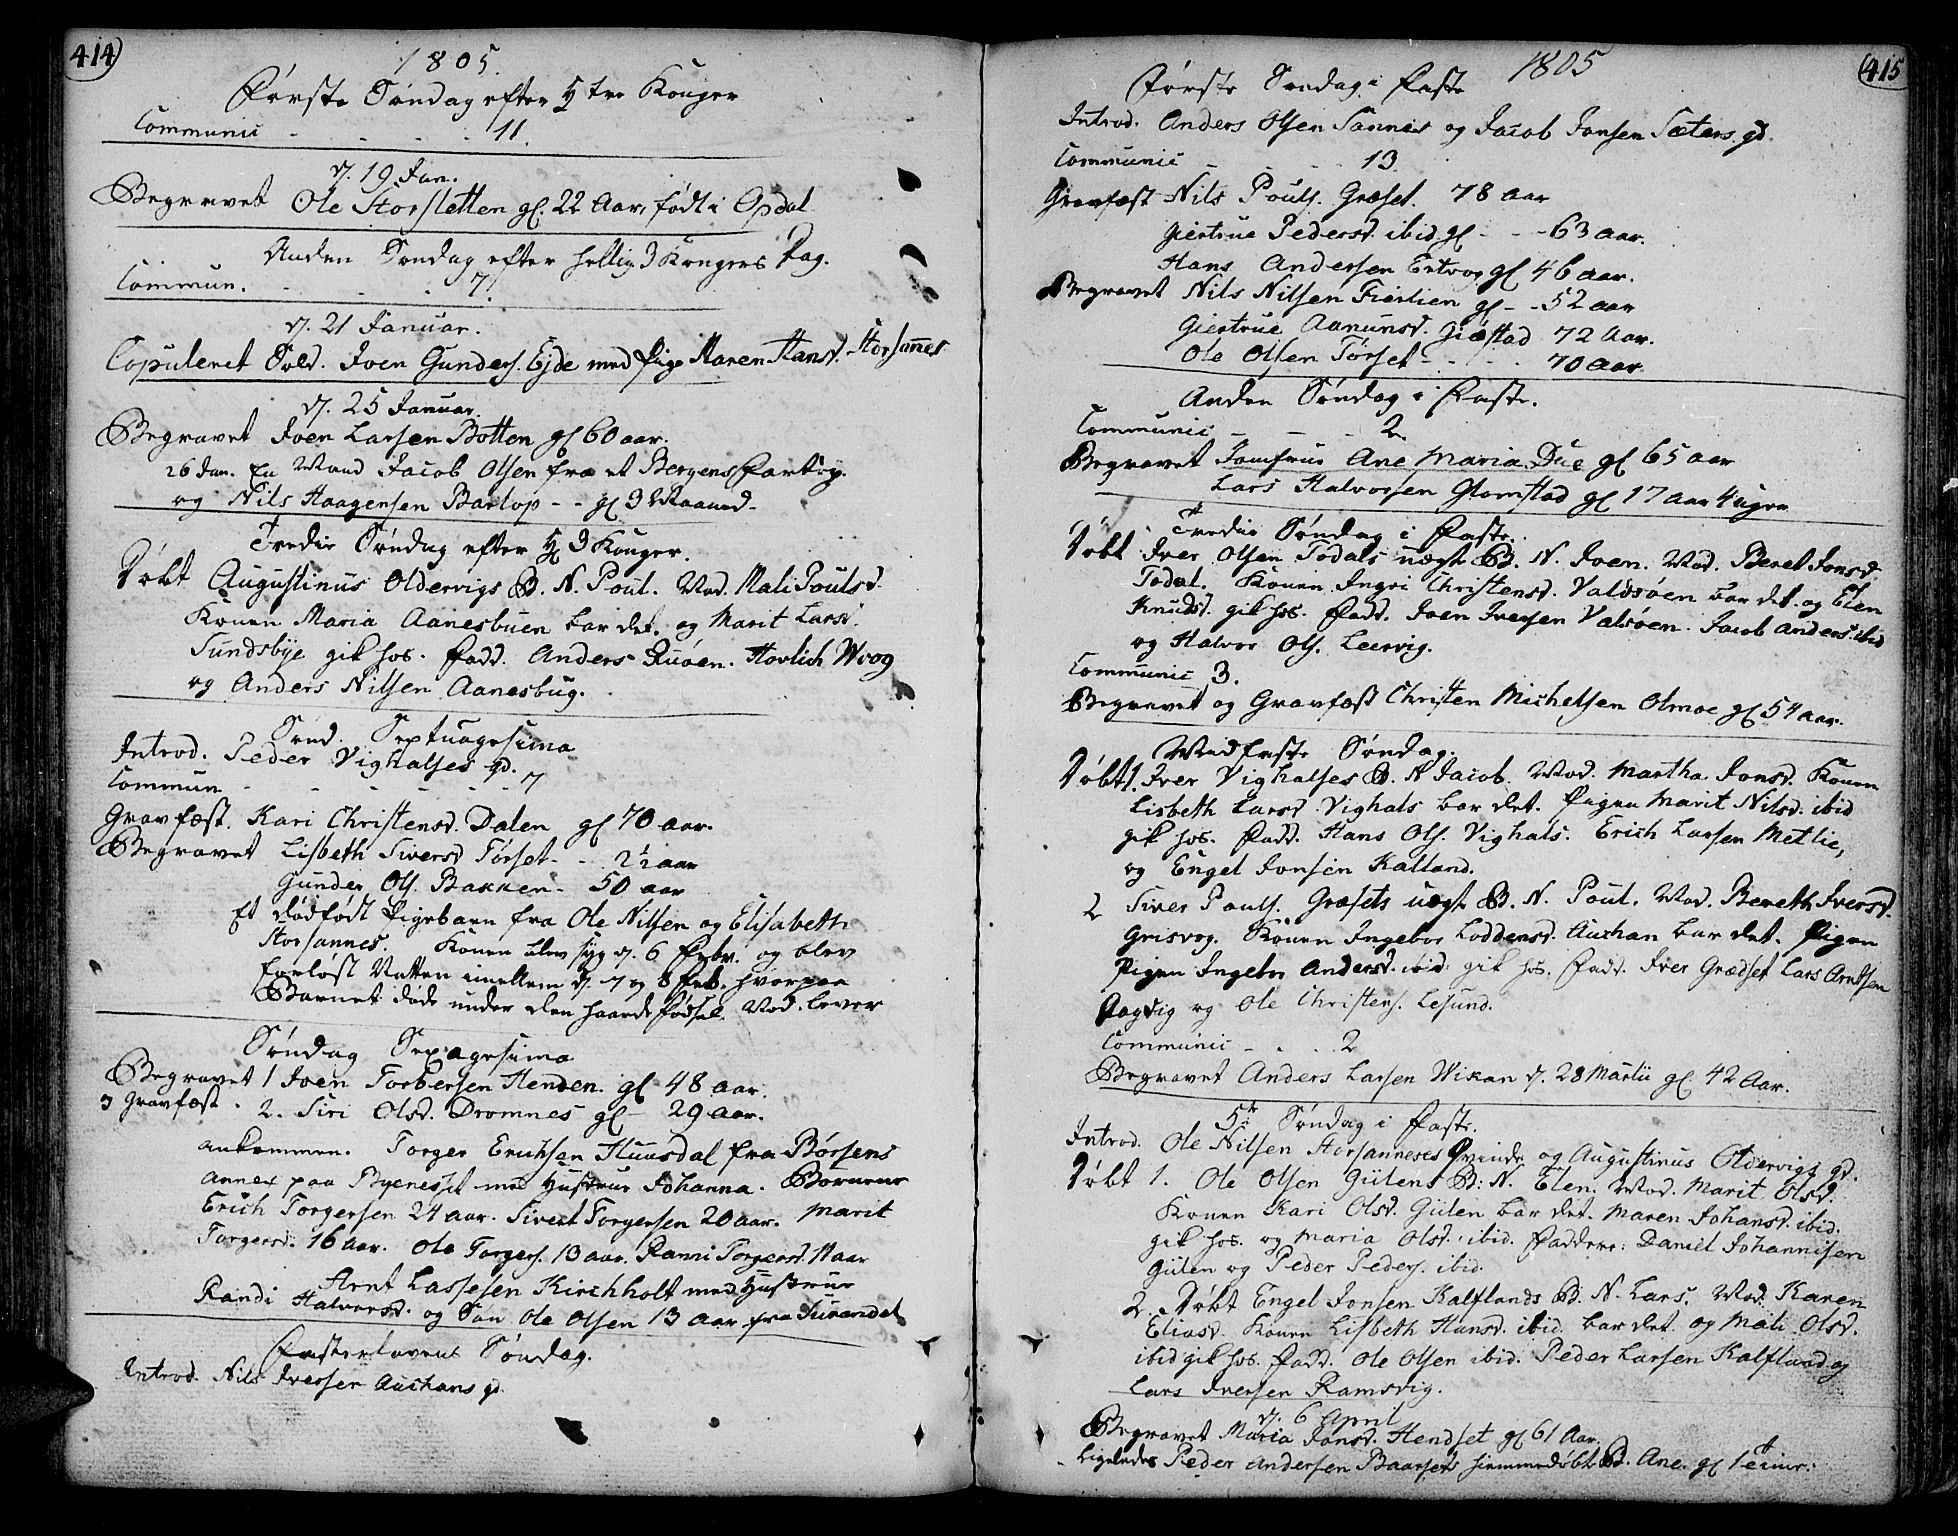 414
1805.
Første Søndag efter H tre Konger
Communic - - - - 11.
d. 19 Jan.
Begravet Ole Storsletten gl. 22 Aar, født i Opdal
Anden Søndag efter hellig 3 Kongers Dag.
Commun. - - - 7.
d. 21 Januar.
Copuleret Sold. Joen Gunders. Ejde med Pige Maren Hansd. Storsannes
d. 25 Januar.
Begravet Joen Larsen Botten gl 60 aar.
26 Jan. En Mand Jacob Olsen fra et Bergens Fartøy.
og Nils Haagensen Bartop - - gl 3 Maaned.
Tredie Søndag efter H 3 Konger.
Døbt Augustinus Oldervigs B. N. Poul. Mod. Mali Poulsd.
Konen Maria Aanesbuen bar det. og Marit Larsd.
Sundsbye gik hos. Fadd. Anders Ruøen. Hovlich Woog
og Anders Nilsen Aanesbug.
Sønd. Septuagesima
Introd. Peder Vighalses qd.
Commun - - - - - - 7
Gravfæst. Kari Christensd. Dalen gl 70 aar.
Begravet Lisbeth Siversd Tørset - - 2½ aar
Gunder Ols. Bakken - 50 aar
Et dødfødt Pigebarn fra Ole Nilsen og Elisabeth
Storsannes. Konen blev syg d. 6 Febr. og blev
forløst Natten imellem d. 7 og 8 Feb. hvorpaa
Barnet døde under den haarde fødsel. Mod. lever
Søndag Sexagesima
Begravet 1 Joen Torbersen Henden. gl 48 aar.
og Gravfæst. 2. Siri Olsd. Dromnes gl - 29 aar.
ankommen. Torger Erichsen Huusdal fra Børsens
annex paa Byenesset med Hustrue Johanna. Børnene
Erich Torgersen 24 aar. Sivert Torgersen 20 aar. Marit
Torgersd. 16 aar. Ole Torgers. 13 aar. Ranni Torgersd. 11 aar
Arnt Lassesen Kirchholt med Hustrue
Randi Halvorsd. og Søn Ole Olsen 13 aar fra Surendal
Fastelavens Søndag.
Introd. Nils Iversen Auchans qd.
415
1805
Første Søndag i Faste
Introd. Anders Olsen Sannes og Jacob Jonsen Sæters. qd.
Communic - - - 13.
Gravfæst Nils Pouls. Græset. 78 aar
Giertrue Pedersd. ibid gl - - - 63 aar.
Hans Andersen Ertvog gl 46 aar.
Begravet Nils Nilsen Fierlien gl - - 52 aar
Giertrue Aanunsd. Giøstad 72 Aar.
Ole Olsen Tørset - - - - 70 aar
Anden Søndag i Faste.
Communic - - - 2.
Begravet Jomfrue Ane Maria Due gl 65 aar
Lars Halvorsen Glomstad gl 17 aar 4 uger
Tredie Søndag i Faste.
Døbt Iver Olsen Todals uægt B. N. Joen. Mod. Beret Jonsd.
Todal. Konen Ingri Christensd. Valdsøen bar det. og Elen
Knudsd. gik hos. Fadd. Joen Iversen Valsøen. Jacob Anders. ibid
og Halvor Ols. Leervig.
Communic 3.
Begravet og Gravfæst Christen Michelsen Olmoe gl 54 aar.
Midfaste Søndag.
Døbt 1. Iver Vighalses B. N Jacob. Mod. Martha Jonsd. Konen
Lisbeth Larsd Vighals bar det. Pigen Marit Nilsd. ibid
gik hos. Fadd. Hans Ols. Vighals. Erich Larsen Metlie,
og Engel Jonsen Kalland.
2 Siver Pouls. Græsets uægt B. N. Poul. Mod. Bereth Iversd.
Grisvog. Konen Ingebor Loddensd. Auchan bar det. Pigen
Pigen Ingebor Andersd. ibid. gik hos. Fadd. Iver Grædset Lars Arntsen
Aagvig og Ole Christens. Lesund.
Communic - . . 2
Begravet Anders Larsen Wikan d. 28 Martii gl. 42 Aar.
5te Søndag i Faste.
Introd. Ole Nilsen Storsanneses Qvinde og Augustinus Oldervigs qd.
Døbt 1. Ole Olsen Gülens B. N. Elen. Mod. Marit Olsd.
Konen Kari Olsd. Gülen bar det. Maren Johansd. ibid.
gik hos. og Maria Olsd. ibid. Faddere: Daniel Johannisen
Gülen og Peder Peders. ibid.
2. Døbt Engel Jonsen Kalflands B. N. Lars. Mod. Karen
Eliasd. Konen Lisbeth Hansd. ibid. bar det. og Mali Olsd.
ibid gik hos. Fadd. Ole Olsen ibid. Peder Larsen Kalfland og
Lars Iversen Ramsvig.
d. 6 April
Begravet Maria Jonsd. Hendset gl 61 Aar.
Ligeledes Peder Andersen Baarsets hiemmedøbt B. Ane. gl 1 Time.